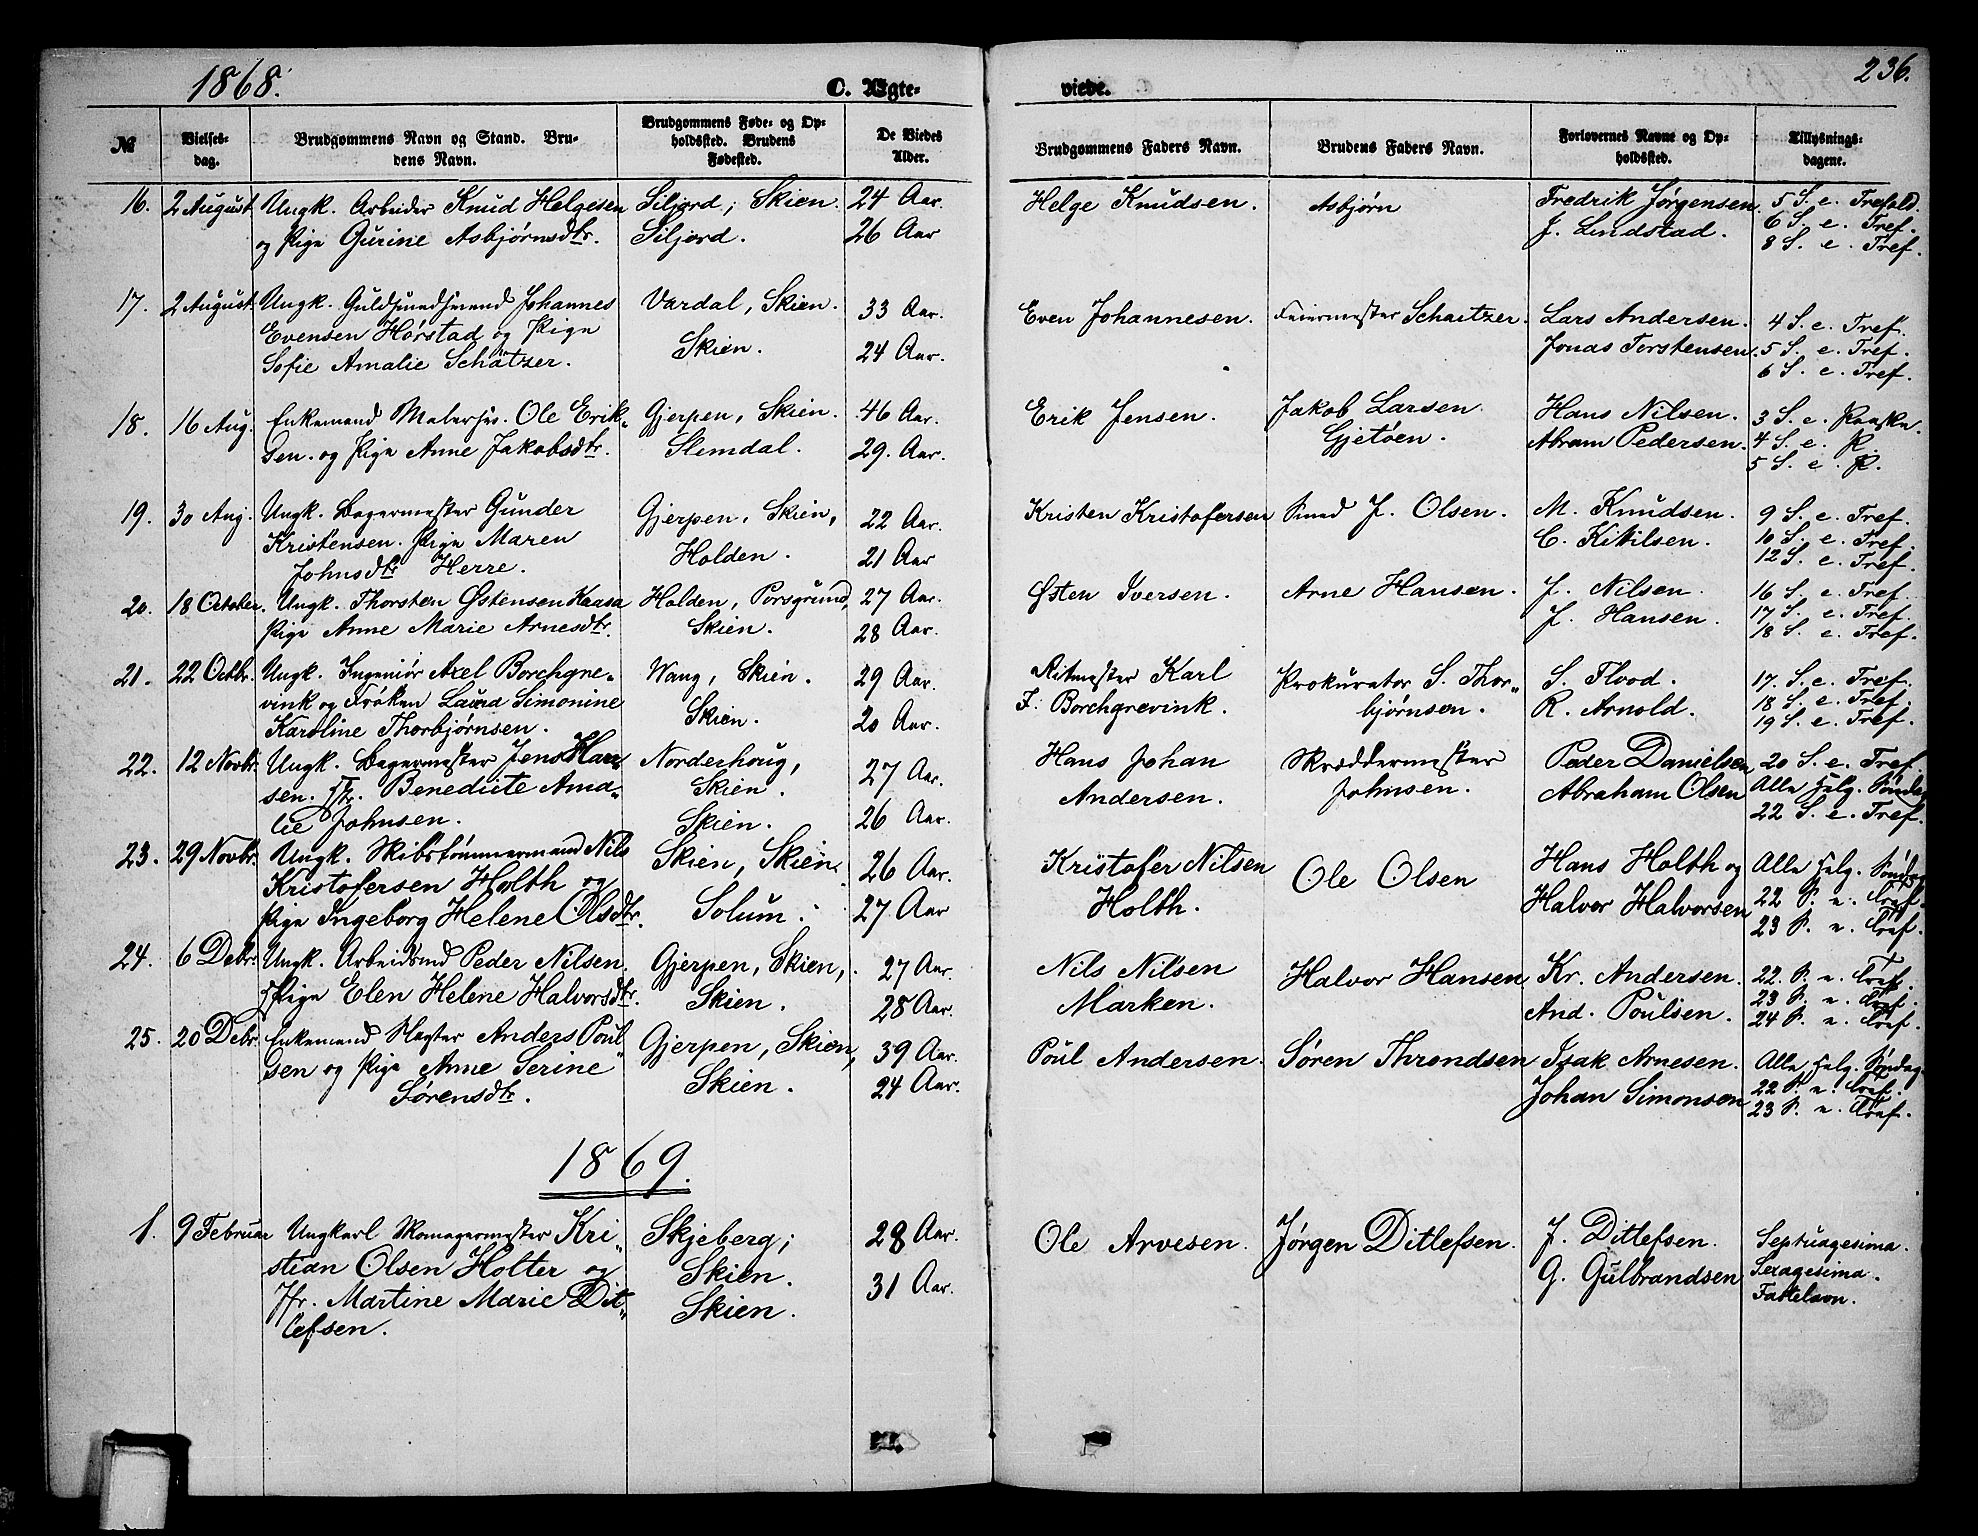 1868.
C. Ægte-
viede.
236.
№
Vielses-
dag.
Brudgommens Navn og Stand. Bru-
dens Navn.
Brudgommens Føde- og Op-
holdssted. Brudens
Fødested.
De Viedes
Alder.
Brudgommens Faders Navn.
Brudens Faders Navn.
Forlovernes Navne og Op-
holdssted.
Tillysnings-
dagene.
16. 2 August Ungk. Arbeider Knud Helgesen Siljord, Skien. 24 Aar. Helge Knudsen. Asbjørn Fredrik Jørgensen. 5 S. e. Trefold.
og Pige Gurine Asbjørnsdtr. Siljord. 26 Aar J. Lindstad. 6 S. e. Tref.
8 S. e. Tref.
17. 2 August Ungk. Guldsmedsvend Johannes Vardal, Skien. 33 Aar. Even Johannesen. Feiermester Schaitzer. Lars Andersen. 4 S. e. Tref.
Evensen Hørstad og Pige Skien. 24 Aar. Jonas Torstensen. 5 S. e. Tref.
Sofie Amalie Schätzer. 6 S. e. Tref.
18. 16 Aug. Enkemand Malersv. Ole Erik- Gjerpen, Skien. 46 Aar. Erik Jensen. Jakob Larsen Hans Nilsen. 3 S. e. Paaske.
sen. og Pige Anne Jakobsdtr. Slemdal. 29. Aar. Gjetøen. Abram Pedersen. 4 S. e. P.
5 S. e. P.
19. 30 Aug. Ungk. Bagermester Gunder Gjerpen, Skien, 22 Aar. Kristen Kristofersen Smed J. Olsen. M. Knudsen. 9 S. e. Tref.
Kristensen. Pige Maren Holden. 21 Aar C. Kittilsen. 10 S. e. Tref.
Johnsdtr Herre. 12 S. e. Tref.
20. 18 October. Ungk. Thorsten Østensen Kaasa Holden, Porsgrund, 27 Aar. Østen Iversen. Arne Hansen. J. Nilsen. 16 S. e. Tref.
Pige Anne Marie Arnesdtr. Skien. 28 Aar. J. Hansen. 17 S. e. Tref.
18 S. e. Tref.
21. 22 Octbr. Ungk. Ingeniør Axel Borchgre- Wang, Skien. 29 Aar. Ritmester Karl Prokurator S. Thor- S. Flood. 17. S. e. Tref.
vink og Frøken Laura Simonine Skien. 20 Aar. F. Borchgrevink. bjørnsen. R. Arnold. 18 S. e. Tref.
Karoline Thorbjørnsen. 19 S. e. Tref.
22. 12 Novbr. Ungk. Bagermester Jens Han- Norderhoug, 27 Aar. Hans Johan Skræddermester Peder Danielsen 20 S. e. Tref.
sen. Jfr. Benedicte Ama- Skien. Andersen. Johnsen. Abraham Olsen Alle Helg. Søndag
lie Johnsen. Skien. 26 Aar. 22 S. e. Tref.
23. 29 Novbr. Ungk. Skibstømmermand Nils Skien, Skien. 26 Aar. Kristofer Nilsen Ole Olsen Hans Holth og Alle Helg. Søndag
Kristofersen Holth og Solum. 27 Aar Holth. Halvor Halvorsen 22 S. e. Tref.
Pige Ingeborg Helene Olsdtr. 23 S. e. Tref.
24. 6 Debr. Ungk. Arbeidsmd Peder Nilsen. Gjerpen, Skien, 27 Aar. Nils Nilsen Halvor Hansen Kr. Andersen. 22. S. e. Tref.
Pige Elen Helene Halvorsdtr. Skien. 28 Aar. Marken. And. Poulsen. 23 S. e. Tref.
24 S. e. Tref.
25. 20 Debr. Enkemand Slagter Anders Poul- Gjerpen, Skien, 39 Aar. Poul Andersen. Søren Throndsen Isak Arnesen. Alle Helg. Søndag
sen og Pige Anne Serine Skien. 24 Aar. Johan Simonsen 22 S. e. Tref.
Sørensdtr. 23 S. e. Tref.
1869.
1. 9 Februar Ungkarl Skomagermester Kri- Skjeberg; 28 Aar. Ole Arvesen. Jørgen Ditlefsen. J. Ditlefsen. Septuagesima.
stian Olsen Holter og Skien. 31 Aar. G. Gulbrandsen Sexagesima.
Jfr. Martine Marie Dit- Skien. Fastelavn.
lefsen.